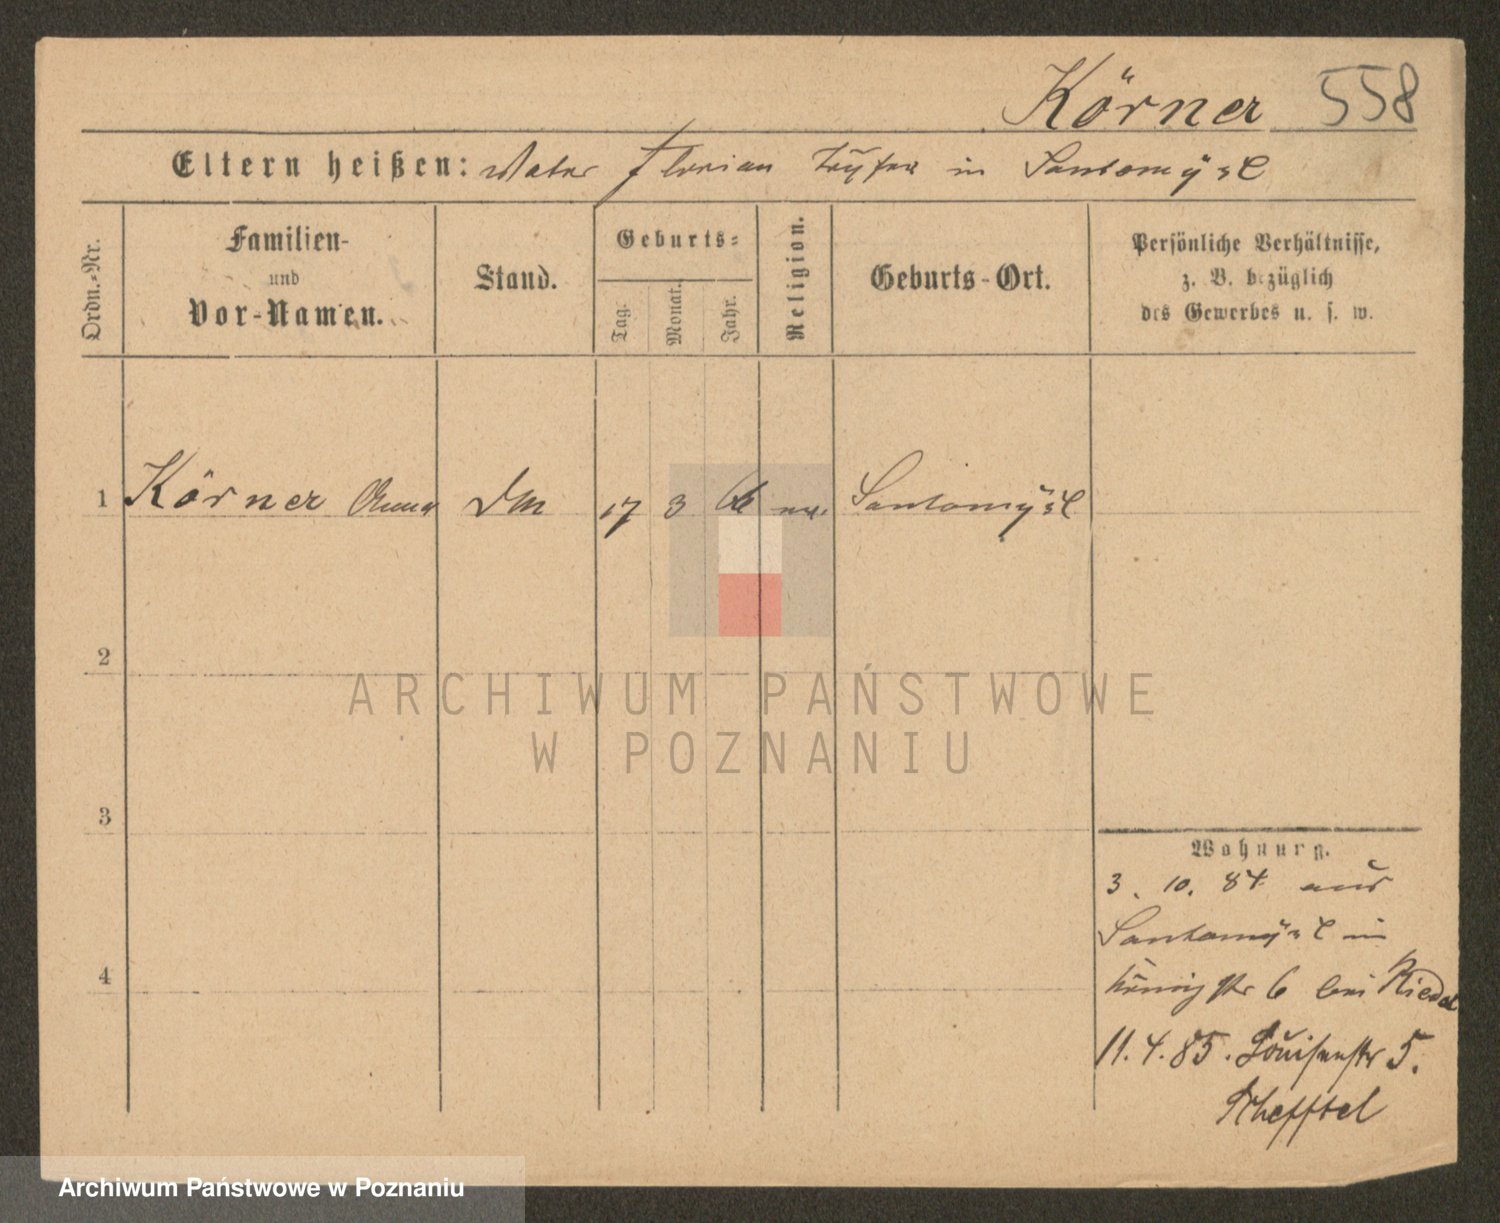 Körner 558
Eltern heißen: Vater Florian in Santomyšl
Ordn.-Nr.
Familien-
und
Vor-Namen.
Stand.
Geburts-
Tag.
Monat.
Jahr.
Religion.
Geburts-Ort.
Persönliche Verhältnisse,
z. B. bezüglich
des Gewerbes u. s. w.
1 Körner Anna DM 17 3 66 Santomyšl
2
3
4
ARCHIWUM PAŃSTWOWE
W POZNANIU
Wohnung.
3. 10. 84 aus
Santomyšl in
Königstr 6 bei Riedel
11. 4. 85. Louisenstr 5.
Schefftel
Archiwum Państwowe w Poznaniu